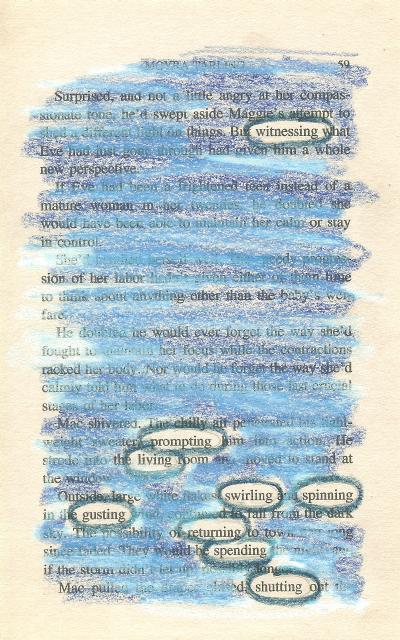 MOYRA TARLING 59
Surprised, and not a little angry at her compas-
sionate tone, he'd swept aside Maggie's attempt to
shed a different light on things. But witnessing what
Eve had just gone through had given him a whole
new perspective.
If Eve had been a frightened teen instead of a
mature woman in her twenties, he doubted she
would have been able to maintain her calm or stay
in control.
She'd
sion of her labor had given either of them time
to think about anything other than the baby's wel-
fare.
He doubted he would ever forget the way she'd
fought to maintain her focus while the contractions
racked her body. Nor would he forget the way she'd
calmly told him what to do during those last crucial
stages of her labor.
Mac shivered. The chilly air penetrated his light-
weight sweater, prompting him into action. He
strode into the living room and moved to stand at
the window.
Outside, large white flakes swirling and spinning
in the gusting wind, continued to fall from the dark
sky. The possibility of returning to town
since faded. They would be spending the night
if the storm didn't let up long.
Mac pulled the drapes closed, shutting out the